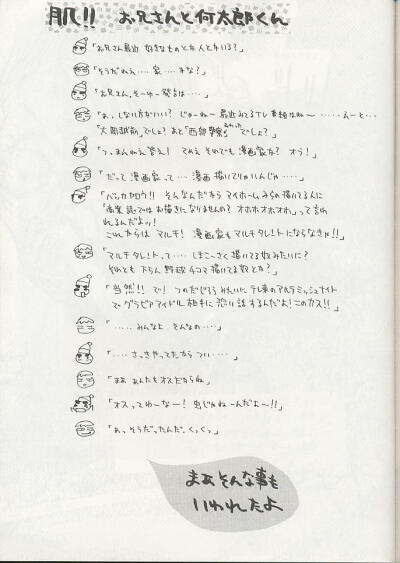 肌!! お兄さんと何太郎くん
「お兄さん最近 好きなものとか人とかいる?」
「そうだねえ…… 家…… かな?」
「お兄さん、そーゆー発言は……」
「あ、しない方がいい? じゃーねー 最近みてるTV番組はね〜 ……えーと…
「大都越前」でしょ? あと「西部警察」でしょ?」
「つ、まんねえ答え! てめえ それでも漫画家か? オラ!」
「だって漫画家って… 漫画描いてりゃいんじゃ……」
「バッカヤロウ!! そんなんだから マイホームみらの描いてる人に
「商業誌ではお描きになりませんの? オホホオホオホ」って言われ
れるんだよッ!
これからは マルチ! 漫画家もマルチタレントにならなきゃ!!」
「マルチタレントって…… しまこーさく描いてる奴みたいに?
それとも下らん野球4コマ描いてる奴とか?」
「当然!! で! つのだじろうみたいに テレ東のアルテミッシュナイト
で グラビアアイドル相手に恐い話するんだよ! このカス!!」
「…… みんなよ そんなの……」
「…… さっきやってたから つい……」
「まあ あんたもオスだからね」
「オスってゆーなー! 男じゃねーんだよー!!」
「あっ そうだったんだ、くっくっ」
まあそんな事も
いわれたよ